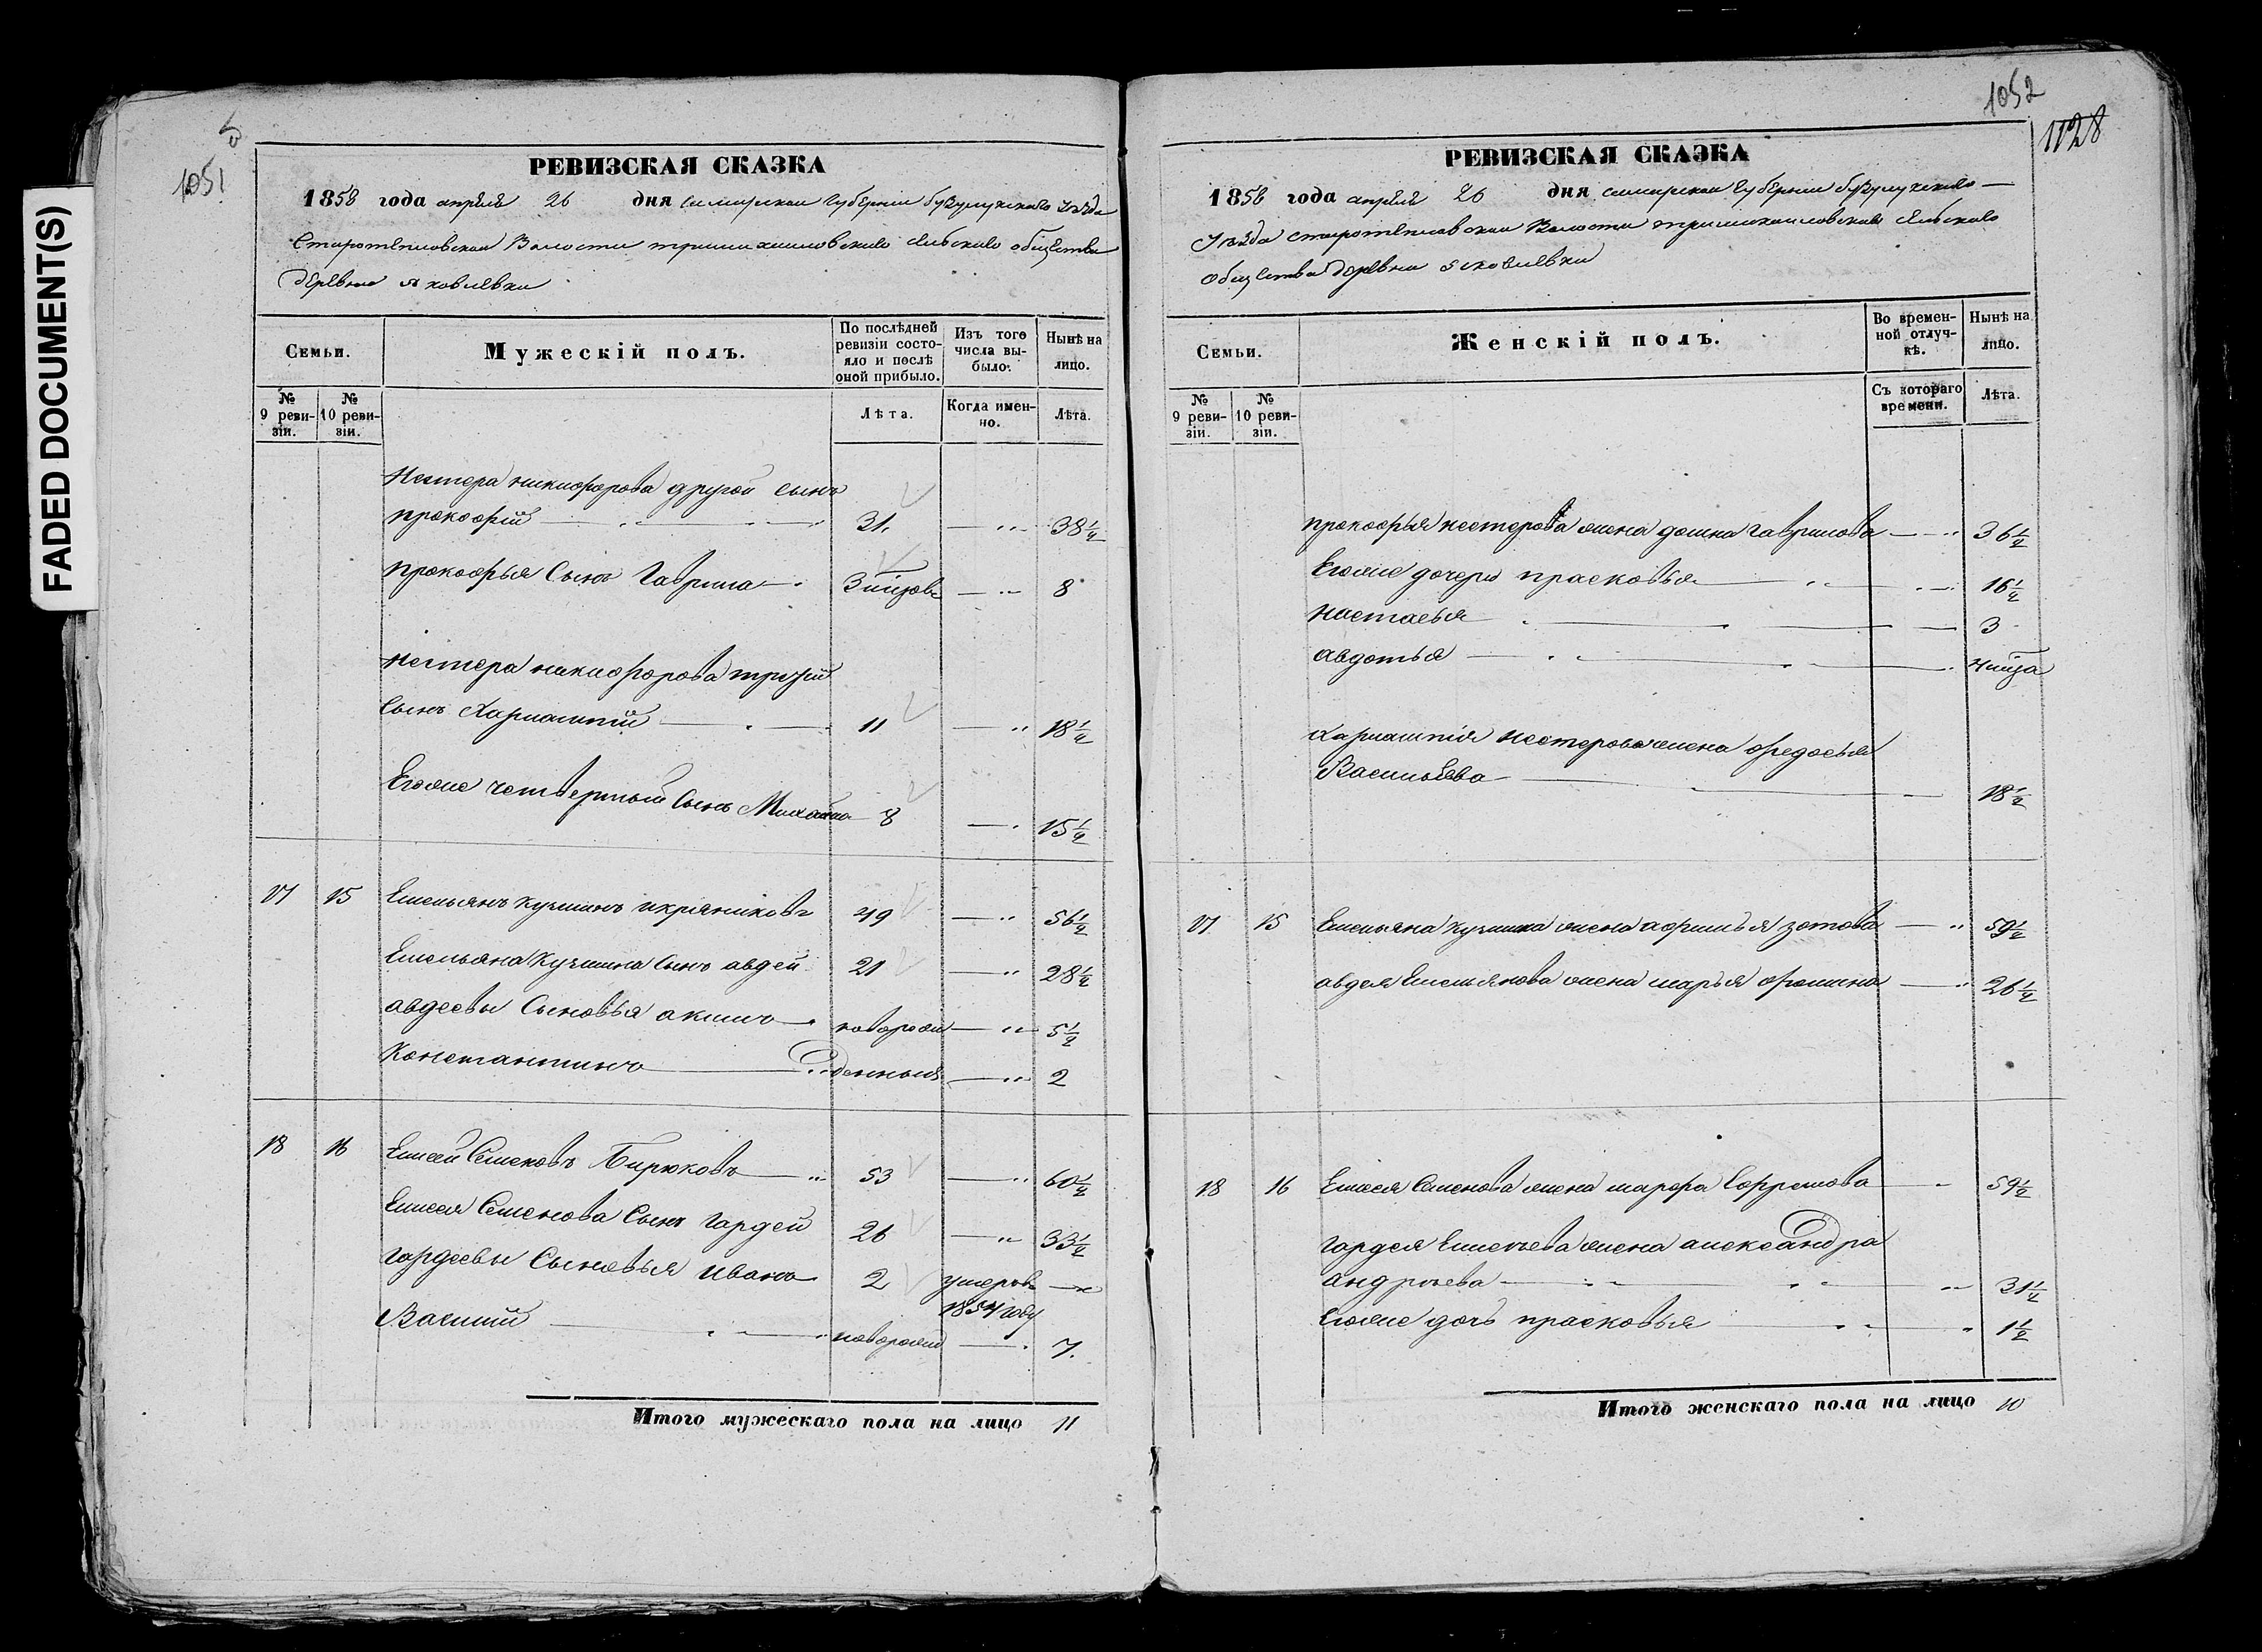 FADED DOCUMENT(S)
5
1051
РЕВИЗСКАЯ СКАЗКА
1858 года апреля 26 дня самарской губернии бузулукского уезда
Старотепловской Волости тришихаиловского сельского общества
деревни яковлевки
Семьи.
Мужескій полъ.
По послѣдней ревизіи состояло и послѣ оной прибыло.
Изъ того числа выбыло.
Нынѣ на лицо.
№ 9 ревизіи.
№ 10 ревизіи.
Лѣта.
Когда именно.
Лѣта.
Нестера никифорова другой сынъ
прокофій 31. 38½
прокофья Сынъ Гаврила 8
нестера никифорова третій
сынъ Харлампій 11 18½
Егоже четвертый Сынъ Михайла 8 15½
17 15 Емельянъ кузминъ икряниковъ 49 56½
Емельяна Кузмина Сынъ авдей 21 28½
авдеевы Сыновья акимъ новорож 5½
Константинъ денныя 2
18 16 Елисей Семеновъ Бирюковъ 53 60½
Елисея Семенова Сынъ Гордей 26 33½
гордеевы Сыновья иванъ 2 умеръ въ
1854 году
Василий новорожд 7.
Итого мужескаго пола на лицо 11
1052
1128
РЕВИЗСКАЯ СКАЗКА
1858 года апреля 26 дня самарской губернии бузулукского
Уезда старотепловской Волости тришихаиловского сельского
общества деревни яковлевки
Семьи.
Женскій полъ.
Во временной отлучкѣ.
Нынѣ на лицо.
№ 9 ревизіи.
№ 10 ревизіи.
Съ котораго времени.
Лѣта.
прокофья нестерова жена домна гаврилова 36½
Егоже дочери прасковья 16½
настасья 3
авдотья
Харлампія нестерова жена федосья
Васильева 18½
17 15 Емельяна кузмина жена афимья зотова 59½
авдея Емельянова жена марья фомина 26½
18 16 Елисея Семенова жена марфа Ефремова 59½
гордея Елисеева жена александра
андреева 31½
Егоже дочь прасковья 1½
Итого женскаго пола на лицо 10